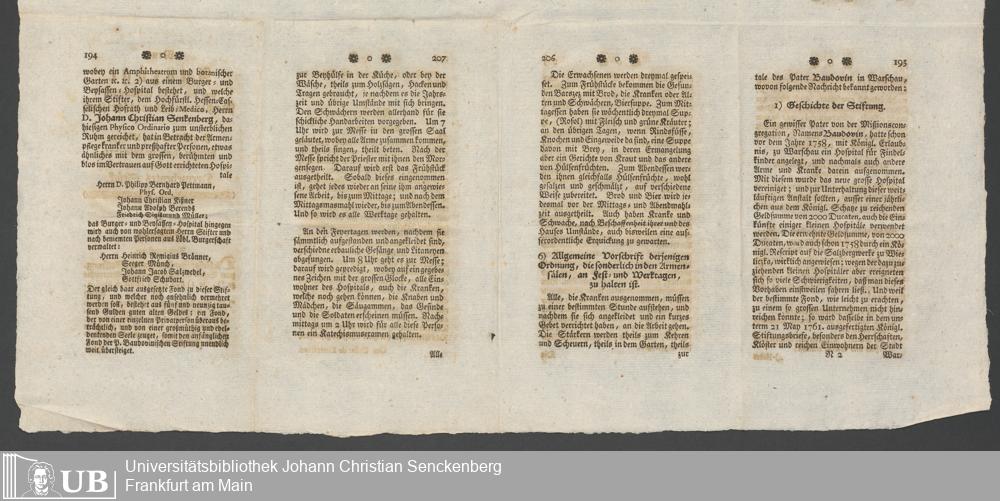 194
wobey ein Amphitheatrum und botanischer
Garten ꝛc. ꝛc. 2) aus einem Burger- und
Beysassen-Hospital bestehet, und welche
ihrem Stifter, dem Hochfürstl. Hessen-Cas-
sellischen Hofrath und Leib-Medico, Herrn
D. Johann Christian Senkenberg, das
hiesigen Physico Ordinario zum unsterblichen
Ruhm gereichet, hat in Betracht der Armen-
pflege kranker und presthafter Personen, etwas
ähnliches mit dem grossen, berühmten und
blos im Vertrauen auf Gott errichteten Hospi-
tale
Herrn D. Philipp Bernhard Pettmann,
Phys. Ord.
Johann Christian Kißner
Johann Adolph Berends
Friedrich Sigismund Müller;
das Burger- und Beysassen-Hospital hingegen
wird auch von wohlersagtem Herrn Stifter und
nach benemten Personen aus Löbl. Burgerschaft
verwaltet:
Herrn Heinrich Remigius Brönner,
Seeger Münch,
Johann Jacob Salzwedel,
Gottfried Schubart.
Der gleich baar ausgesetzte Fond zu dieser Stif-
tung, und welcher noch ansehnlich vermehret
werden soll, bestehet aus fünf und neunzig tau-
send Gulden guten alten Geldes: ein Fond,
der von einer einzelnen Privatperson überaus be-
trächtlich, und von einer großmüthig und edel-
denkenden Seele zeuget, somit den anfänglichen
Fond der P. Baudowinischen Stiftung unendlich
weit übersteiget.
207
zur Beyhülfe in der Küche, oder bey der
Wäsche, theils zum Holzsägen, Hacken und
Tragen gebraucht, je nachdem es die Jahrs-
zeit und übrige Umstände mit sich bringen.
Den Schwächern werden allerhand für sie
schickliche Handarbeiten vorgegeben. Um 7
Uhr wird zur Messe in den grossen Saal
geläutet, wobey alle Arme zusammen kommen,
und theils singen, theils beten. Nach der
Messe spricht der Priester mit ihnen den Mor-
gensegen. Darauf wird erst das Frühstück
ausgetheilt. Sobald dieses eingenommen
ist, gehet jedes wieder an seine ihm angewie-
sene Arbeit, bis zum Mittage; und nach dem
Mittagsmahl wieder, bis zum Abendessen.
Und so wird es alle Werktage gehalten.
An den Feyertagen werden, nachdem sie
sämmtlich aufgestanden und angekleidet sind,
verschiedene erbauliche Gesänge und Litaneyen
abgesungen. Um 8 Uhr geht es zur Messe;
darauf wird geprediget, wobey auf ein gegebe-
nes Zeichen mit der grossen Glocke, alle Ein-
wohner des Hospitals, auch die Kranken,
welche noch gehen können, die Knaben und
Mädchen, die Säugammen, das Gesinde
und die Soldaten erscheinen müssen. Nach-
mittags um 2 Uhr wird für alle diese Perso-
nen ein Katechismusexamen gehalten.
Alle
206
Die Erwachsenen werden dreymal gespei-
set. Zum Frühstück bekommen die Gesun-
den Baresz mit Brod, die Kranken oder Al-
ten und Schwächern, Biersuppe. Zum Mit-
tagessen haben sie wöchentlich dreymal Sup-
pe, (Rosol) mit Fleisch und grüne Kräuter;
an den übrigen Tagen, wenn Rindsfüsse,
Knochen und Eingeweide da sind, eine Suppe
davon mit Brey, in deren Ermangelung
aber ein Gerichte von Kraut und das andere
von Hülsenfrüchten. Zum Abendessen wer-
den ihnen gleichfalls Hülsenfrüchte, wohl
gesalzen und geschmälzt, auf verschiedene
Weise zubereitet. Brod und Bier wird je-
desmal vor der Mittags- und Abendmahl-
zeit ausgetheilt. Auch haben Kranke und
Schwache, nach Beschaffenheit ihrer und des
Hauses Umstände, auch bisweilen eine aus-
serordentliche Erquickung zu gewarten.
6) Allgemeine Vorschrift derjenigen
Ordnung, die sonderlich in den Armen-
sälen, an Fest- und Werktagen,
zu halten ist.
Alle, die Kranken ausgenommen, müssen
zu einer bestimmten Stunde aufstehen, und
nachdem sie sich angekleidet und ein kurzes
Gebet verrichtet haben, an die Arbeit gehen.
Die Stärkern werden theils zum Kehren
und Scheuern, theils in dem Garten, theils
zur
195
tale des Pater Baudovin in Warschau,
wovon folgende Nachricht bekannt geworden:
1) Geschichte der Stiftung.
Ein gewisser Pater von der Missionscon-
gregation, Namens Baudovin, hatte schon
vor dem Jahre 1758, mit Königl. Erlaub-
nis, zu Warschau ein Hospital für Findel-
kinder angelegt, und nachmals auch andere
Arme und Kranke darein aufgenommen.
Mit diesem wurde das neue grosse Hospital
vereiniget; und zur Unterhaltung dieser weit-
läuftigen Anstalt fallen, ausser einer jährli-
chen aus dem Königl. Schatze zu reichenden
Geldsumme von 2000 Ducaten, auch die Ein-
künfte einiger kleinen Hospitäle verwendet
werden. Die erwehnte Geldsumme, von 2000
Ducaten, ward auch schon 1758 durch ein Kö-
nigl. Rescript auf die Salzbergwerke zu Wie-
liczka, wirklich angewiesen; wegen der dazu zu-
ziehenden kleinen Hospitäler aber ereigneten
sich so viele Schwierigkeiten, daß man dieses
Vorhaben einsweilen fahren ließ. Und weil
der bestimmte Fond, wie leicht zu erachten,
zu einem so grossen Unternehmen nicht hin-
reichen konnte; so ward desselbe in dem un-
term 21 May 1761. ausgefertigten Königl.
Stiftungsbriefe, besonders den Herrschaften,
Klöster und reichen Einwohnern der Stadt
N 2 War-
UB
Universitätsbibliothek Johann Christian Senckenberg
Frankfurt am Main